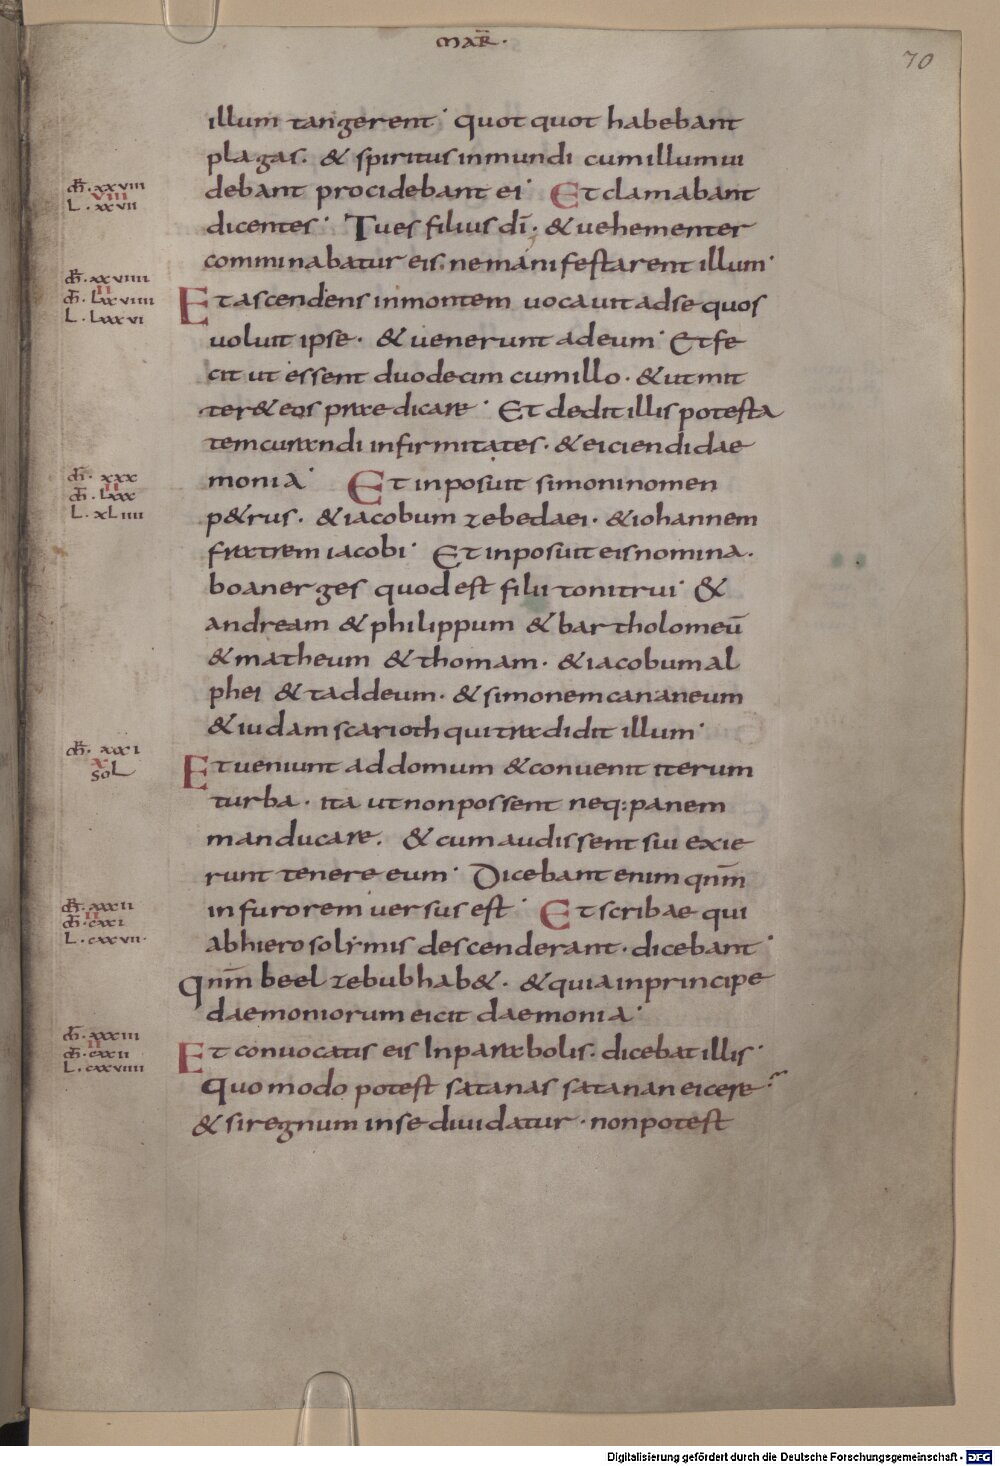 MAR̄.
70
illum tangerent · quotquot habebant
plagas. & spiritus inmundi cum illum ui
debant procidebant ei · Et clamabant
dicentes · Tu es filius dī. & uehementer
comminabatur eis. ne manifestarent illum ·
m̄. xxviii
viii
L. xxvii
Et ascendens in montem uocauit ad se quos
uoluit ipse. & uenerunt ad eum · Et fe
cit ut essent duodecim cum illo. & ut mit
ter& eos praedicare · Et dedit illis potesta
tem curandi infirmitates. & eiciendi dae
monia · Et inposuit simoni nomen
m̄. xxviiii
ii
m̄. Lxxviiii
L. Lxxxvi
p&rus. & iacobum zebedaei. & iohannem
fratrem iacobi · Et inposuit eis nomina.
boanerges quod est filii tonitrui · &
andream & philippum & bartholomeū
& matheum & thomam. & iacobum al
phei & taddeum. & simonem cananeum
& iudam scarioth qui tradidit illum ·
m̄. xxx
ii
m̄. Lxxx
L. xLiiii
Et ueniunt ad domum & conuenit iterum
turba. ita ut non possent neq: panem
manducare. & cum audissent sui exie
runt tenere eum · Dicebant enim qnm̄
in furorem uersus est · Et scribae qui
m̄. xxxi
x
soL
ab hierosolymis descenderant. dicebant ·
qnm̄ beelzebub hab&. & quia in principe
daemoniorum eicit daemonia ·
m̄. xxxii
ii
m̄. cxxi
L. cxxvii.
Et conuocatis eis In parabolis. dicebat illis ·
Quomodo potest satanas satanan eicere
& si regnum in se diuidatur. non potest
m̄. xxxiii
ii
m̄. cxxii
L. cxxviiii
Digitalisierung gefördert durch die Deutsche Forschungsgemeinschaft - DFG